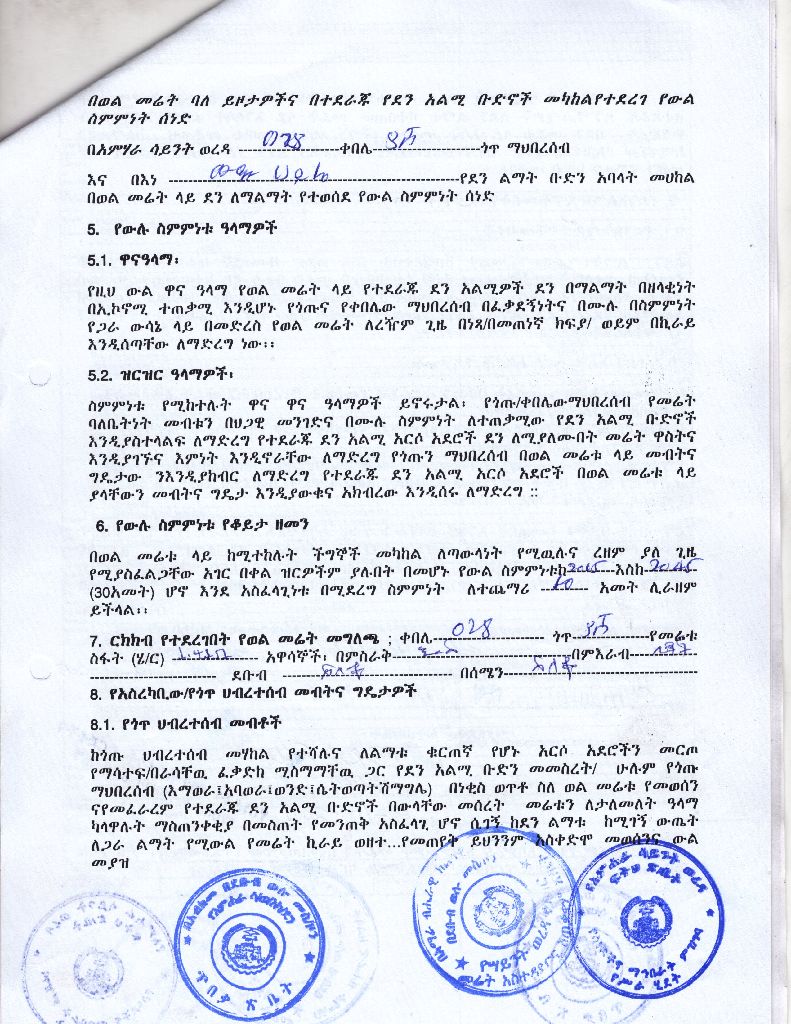 በወል መሬት ባለ ይዞታዎችና በተደራጁ የደን አልሚ ቡድኖች መካከልየተደረገ የውል
ስምምነት ሰነድ
በአምሃራ ሳይንት ወረዳ ---028---ቀበሌ---ጎጥ ማህበረሰብ
እና በእነ ---የደን ልማት ቡድን አባላት መሀከል
በወል መሬት ላይ ደን ለማልማት የተወሰደ የውል ስምምነት ሰነድ
5. የውሉ ስምምነቱ ዓላማዎች
5.1. ዋናዓላማ፡
የዚህ ውል ዋና ዓላማ የወል መሬት ላይ የተደራጁ ደን አልሚዎች ደን በማልማት በዘላቂነት
በኢኮኖሚ ተጠቃሚ እንዲሆኑ የጎጡና የቀበሌው ማህበረሰብ በፈቃደኝነትና በሙሉ በስምምነት
የጋራ ውሳኔ ላይ በመድረስ የወል መሬት ለረዥም ጊዜ በነጻ/በመጠነኛ ክፍያ/ ወይም በኪራይ
እንዲሰጣቸው ለማድረግ ነው፡፡
5.2. ዝርዝር ዓላማዎች፡
ስምምነቱ የሚከተሉት ዋና ዋና ዓላማዎች ይኖሩታል፡ የጎጡ/ቀበሌውማህበረሰብ የመሬት
ባለቤትነት መብቱን በህጋዊ መንገድና በሙሉ ስምምነት ለተጠቃሚው የደን አልሚ ቡድኖች
እንዲያስተላልፍ ለማድረግ የተደራጁ ደን አልሚ አርሶ አደሮች ደን ለሚያለሙበት መሬት ዋስትና
እንዲያገኙና እምነት እንዲኖራቸው ለማድረግ የጎጡን ማህበረሰብ በወል መሬቱ ላይ መብትና
ግዴታው ንእንዲያከብር ለማድረግ የተደራጁ ደን አልሚ አርሶ አደሮች በወል መሬቱ ላይ
ያላቸውን መብትና ግዴታ እንዲያውቁና አክብረው እንዲሰሩ ለማድረግ ::
6. የውሉ ስምምነቱ የቆይታ ዘመን
በወል መሬቱ ላይ ከሚተከሉት ችግኞች መካከል ለጣውላነት የሚዉሉና ረዘም ያለ ጊዜ
የሚያስፈልጋቸው አገር በቀል ዝርዎችም ያሉበት በመሆኑ የውል ስምምነቱከ2015---እስከ2045
(30አመት) ሆኖ እንደ አስፈላጊነቱ በሚደረግ ስምምነት ለተጨማሪ ---10--- አመት ሊራዘም
ይችላል፡፡
7. ርክክብ የተደረገበት የወል መሬት መግለጫ ; ቀበሌ---028--- ጎጥ ---የመሬቱ
ስፋት (ሄ/ር) --- አዋሳኞች፡ በምስራቅ---በምእራብ---
--- ደቡብ --- በሰሜን---
8. የአስረካቢው/የጎጥ ህብረተሰብ መብትና ግዴታዎች
8.1. የጎጥ ህብረተሰብ መብቶች
ከጎጡ ህብረተሰብ መሃከል የተሻሉና ለልማቱ ቁርጠኛ የሆኑ አርሶ አደሮችን መርጦ
የማሳተፍ/በራሳቸዉ ፈቃድከ ሚስማማቸዉ ጋር የደን አልሚ ቡድን መመስረት/ ሁሉም የጎጡ
ማህበረሰብ (እማወራ፤አባወራ፤ወንድ፤ሴትወጣትሽማግሌ) በነቂስ ወጥቶ ስለ ወል መሬቱ የመወሰን
ናየመፈራረም የተደራጁ ደን አልሚ ቡድኖች በውላቸው መሰረት መሬቱን ለታለመለት ዓላማ
ካላዋሉት ማስጠንቀቂያ በመስጠት የመንጠቅ አስፈላጊ ሆኖ ሲገኝ ከደን ልማቱ ከሚገኝ ውጤት
ለጋራ ልማት የሚውል የመሬት ኪራይ ወዘተ...የመጠየቅ ይህንንም አስቀድሞ መወሰንና ውል
መያዝ
ጥበቃ ጽ ቤት